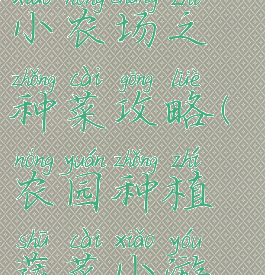 xiǎo nóng chǎng zhī
小农场之
zhǒng cài gōng lüè
种菜攻略(
nóng yuán zhǒng zhí
农园种植
shū cài xiǎo yóu
蔬菜小游